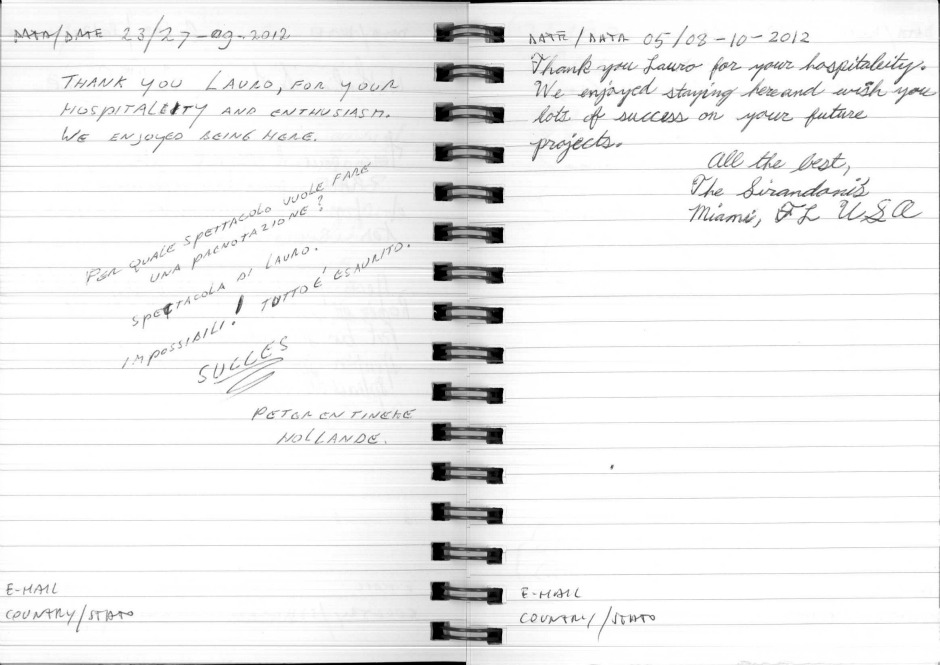 DATA/DATE 23/27-09-2012
THANK YOU LAURO, FOR YOUR
HOSPITALEITY AND ENTHUSIASM.
WE ENJOYED BEING HERE.
PER QUALE SPETTACOLO VUOLE FARE
UNA PRENOTAZIONE?
SPETTACOLA DI LAURO.
IMPOSSIBILI! TUTTO É ESAURITO.
SUCCES
PETER EN TINEKE
HOLLANDE.
E-MAIL
COUNTRY/STATO
DATE/DATA 05/08-10-2012
Thank you Lauro for your hospitaleity.
We enjoyed staying here and wish you
lots of success on your future
projects.
All the best,
The Sirandoni's
Miami, FL USA
E-MAIL
COUNTRY/STATO